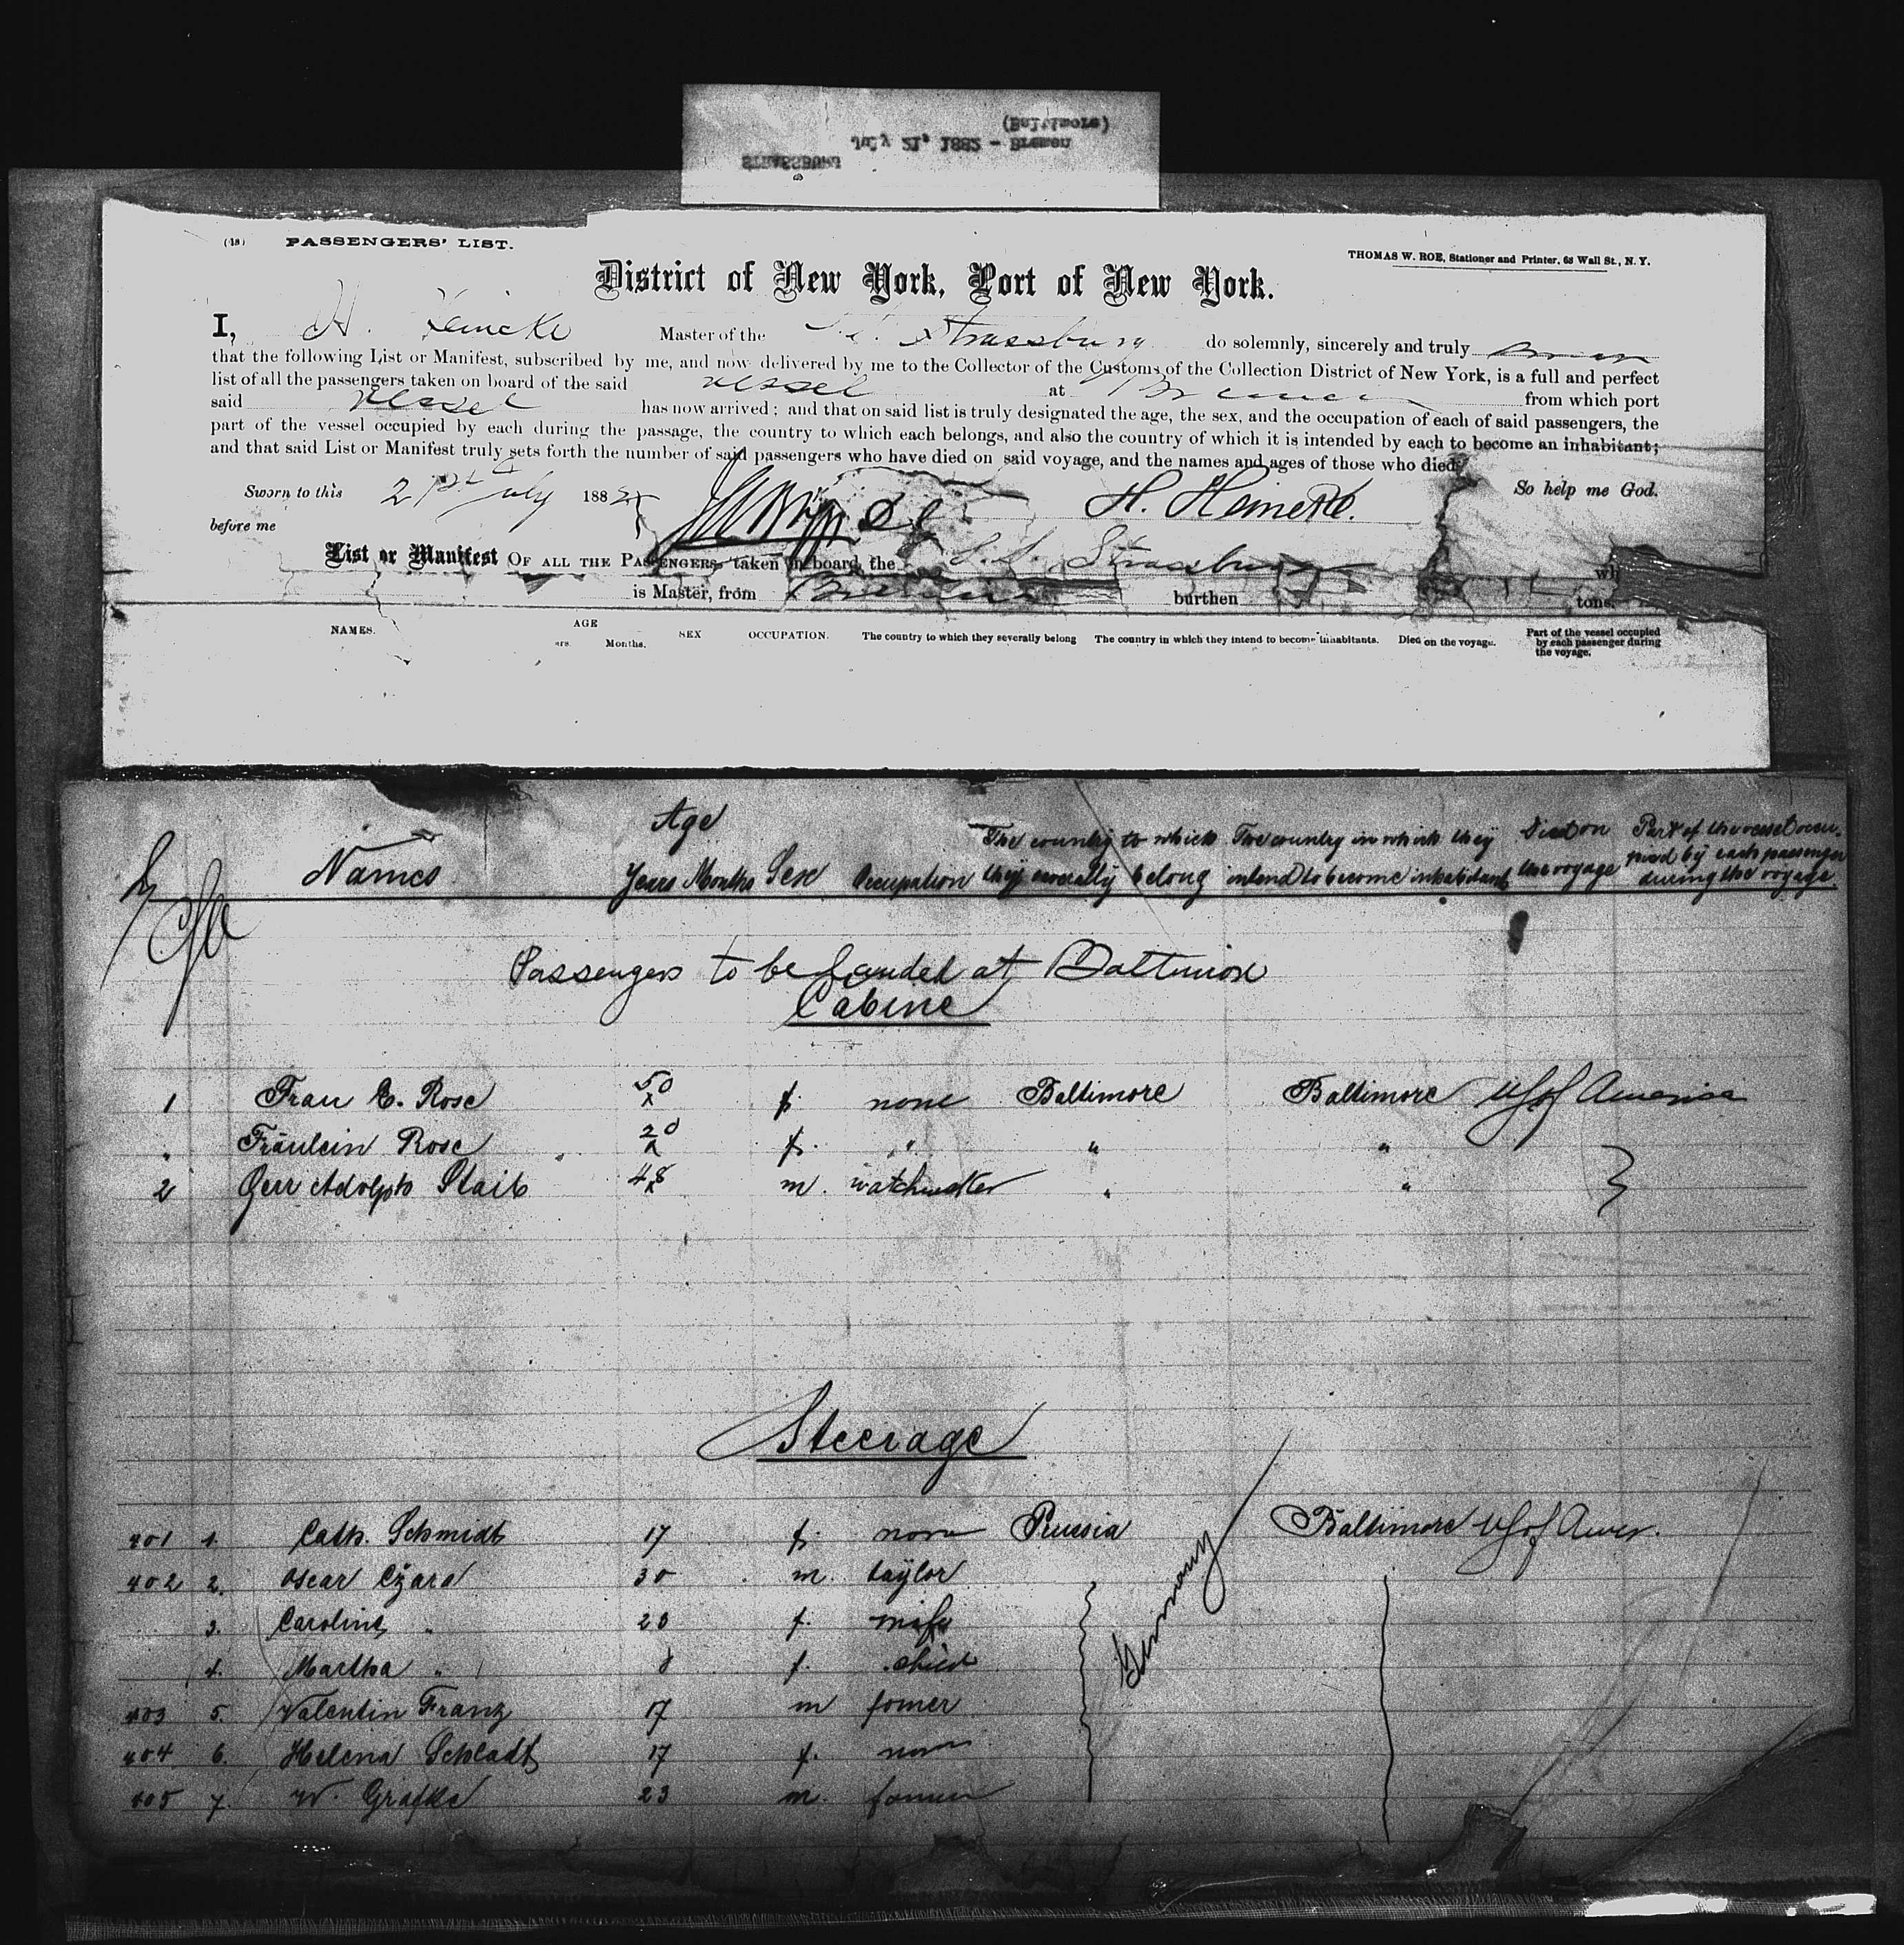 STRASSBURG
July 21, 1882 - Bremen
(Baltimore)
(18) PASSENGERS' LIST.
THOMAS W. ROE, Stationer and Printer, 63 Wall St., N. Y.
District of New York, Port of New York.
I, H. Heincke Master of the S.S. Strassburg do solemnly, sincerely and truly swear
that the following List or Manifest, subscribed by me, and now delivered by me to the Collector of the Customs of the Collection District of New York, is a full and perfect
list of all the passengers taken on board of the said vessel at Bremen from which port
said vessel has now arrived; and that on said list is truly designated the age, the sex, and the occupation of each of said passengers, the
part of the vessel occupied by each during the passage, the country to which each belongs, and also the country of which it is intended by each to become an inhabitant;
and that said List or Manifest truly sets forth the number of said passengers who have died on said voyage, and the names and ages of those who died.
So help me God.
Sworn to this 21st July 1882
before me
H. Heincke.
List or Manifest OF ALL THE PASSENGERS taken on board the S.S. Strassburg wh
is Master, from Bremen burthen tons.
NAMES. AGE ars. Months. SEX OCCUPATION. The country to which they severally belong The country in which they intend to become inhabitants. Died on the voyage. Part of the vessel occupied by each passenger during the voyage.
Names Age Years Months Sex Occupation The country to which they severally belong The country in which they intend to become inhabitants Died on the voyage Part of the vessel occupied by each passenger during the voyage
Passengers to be landed at Baltimore
Cabine
1 Frau E. Rose 50 f. none Baltimore Baltimore US of America
" Fräulein Rose 20 f. " " "
2 Herr Adolph Staib 48 m. watchmaker " "
Steerage
401 1. Cath. Schmidt 17 f. none Prussia Germany Baltimore US of Amer.
402 2. Oscar Czara 30 m. taylor
3. Caroline " 28 f. wife
4. Martha " 8 f. child
403 5. Valentin Franz 17 m farmer
404 6. Helena Schladt 17 f. none
405 7. W. Grafke 23 m. farmer